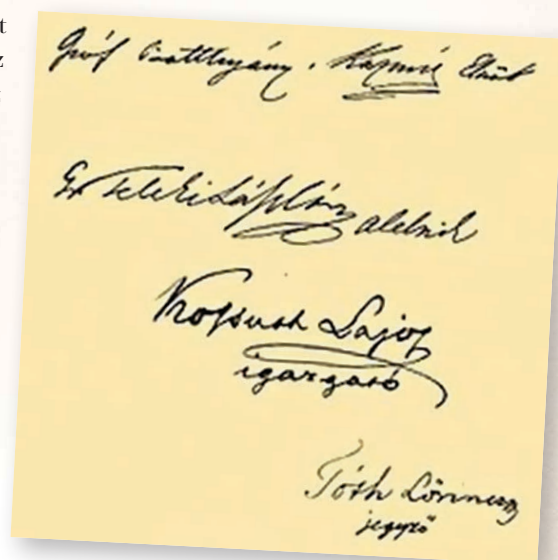 t
z
Gróf Batthyány Kázmér Elnök
Gr Teleki László alelnök
Kossuth Lajos
igazgató
Tóth Lőrincz
jegyző